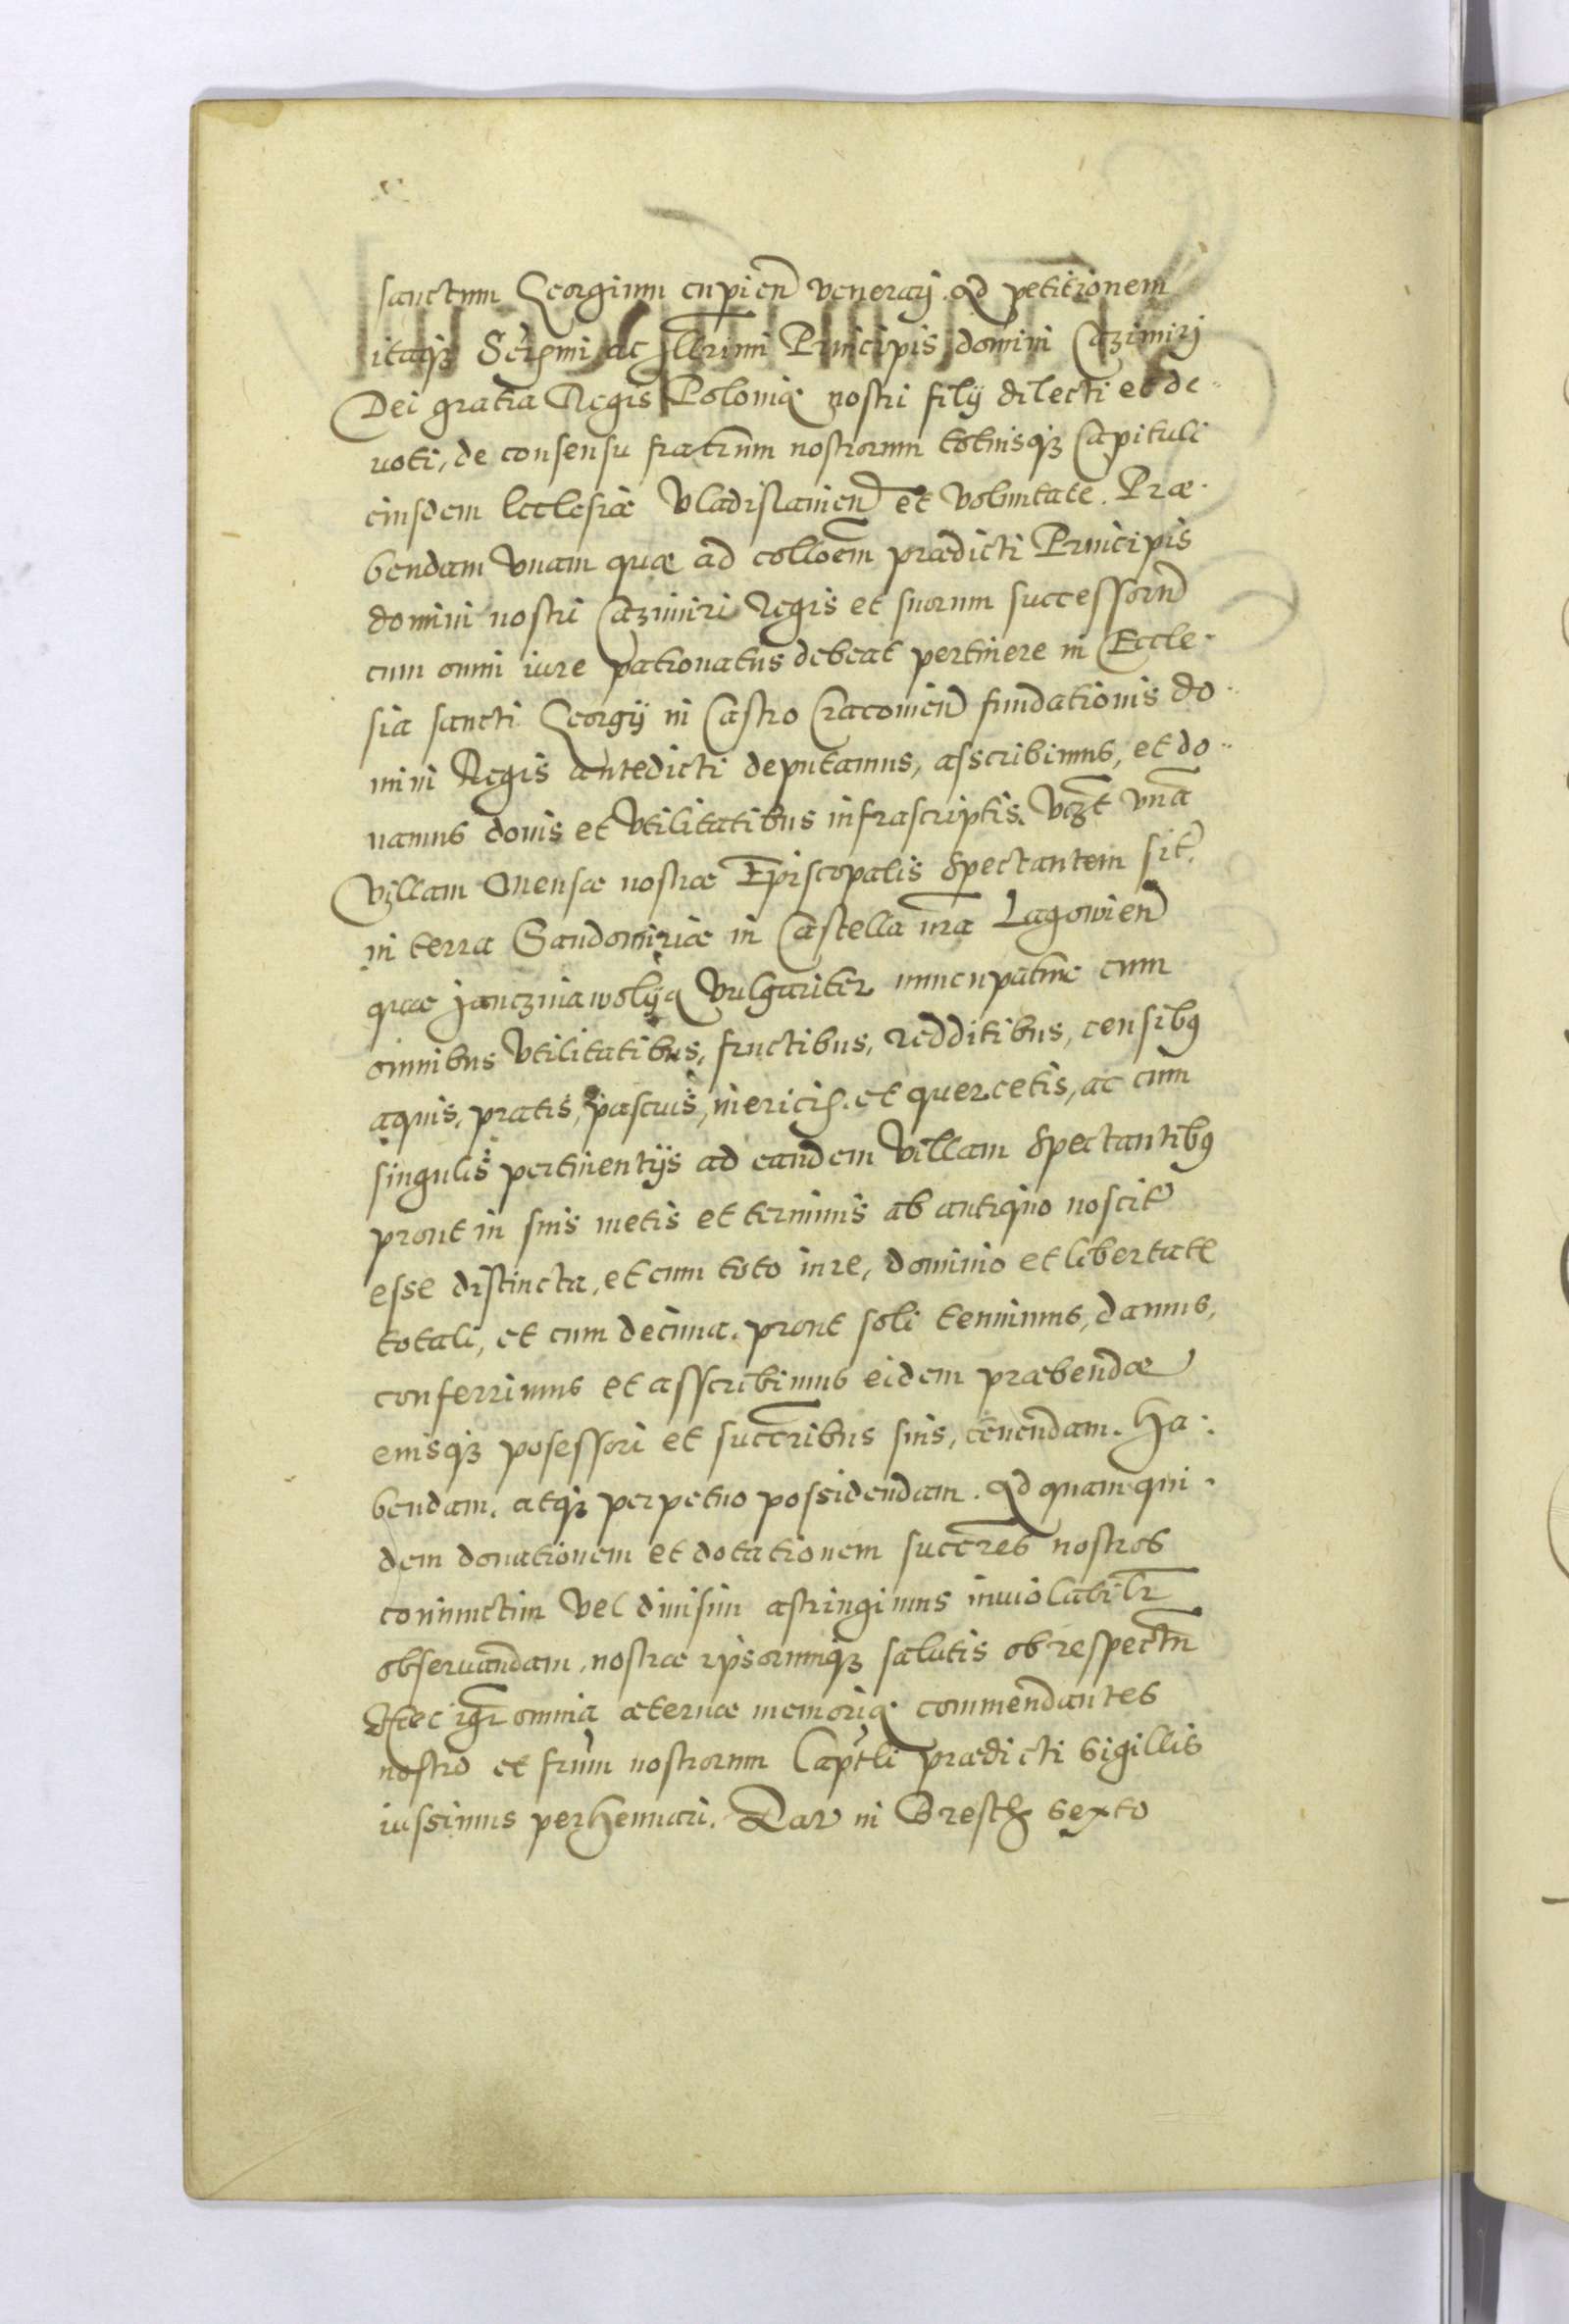 sanctum Georgium cupien̄ venerarj. Ad petitionem
itaq3 Serẽmi ac Illr̃mi Principis domini Cazimirj
Dei gratia Regis Poloniæ nostri filij dilecti et de-
uoti, de consensu fratrum nostrorum totiusq3 Capituli
eiusdem Ecclesiæ Vladislauien̄ et voluntate. Præ-
bendam vnam quæ ad colloēm prædicti Principis
domini nostri Cazimiri Regis et suorum successorũ
cum omni iure patronatus debeat pertinere in Eccle-
sia sancti Georgij in Castro Cracouien̄ fundationis do-
mini Regis antedicti deputamus, asscribimus, et do-
namus donis et vtilitatibus infrascriptis. Vzt̃ vnã
Villam Mensæ nostræ Episcopalis spectantem sit̃.
in terra Sandomiriæ in Castella m̃a Lagowien̄
quæ Janczinawolya vulgariter nuncupatur cum
omnibus vtilitatibus, fructibus, redditibus, censibq
aquis, pratis, pascuis, mericis. et quercetis, ac cum
singulis pertinentijs ad eandem villam spectantibq
prout in suis metis et terminis ab antiquo noscit̃
esse distincta, et cum toto iure, dominio et libertate
totali, et cum decima. prout soli tenuimus, damus,
conferrimus et asscribimus eidem præbendæ
eiusq3 posessori et succr̃ibus suis, tenendam. Ha-
bendam. atq3 perpetuo possidendam. Ad quam qui-
dem donationem et dotationem succr̃es nostros
coniunctim vel diuisim astringimus inuiolabilr̃
obseruandam, nostræ ipsorumq3 salutis ob respectũ
Hæc igr̃ omnia æternæ memoriæ commendantes
nostro et frũm nostrorum Captl̃i prædicti sigillis
iussimus perhennari. Dat̃ in Bresth sexto